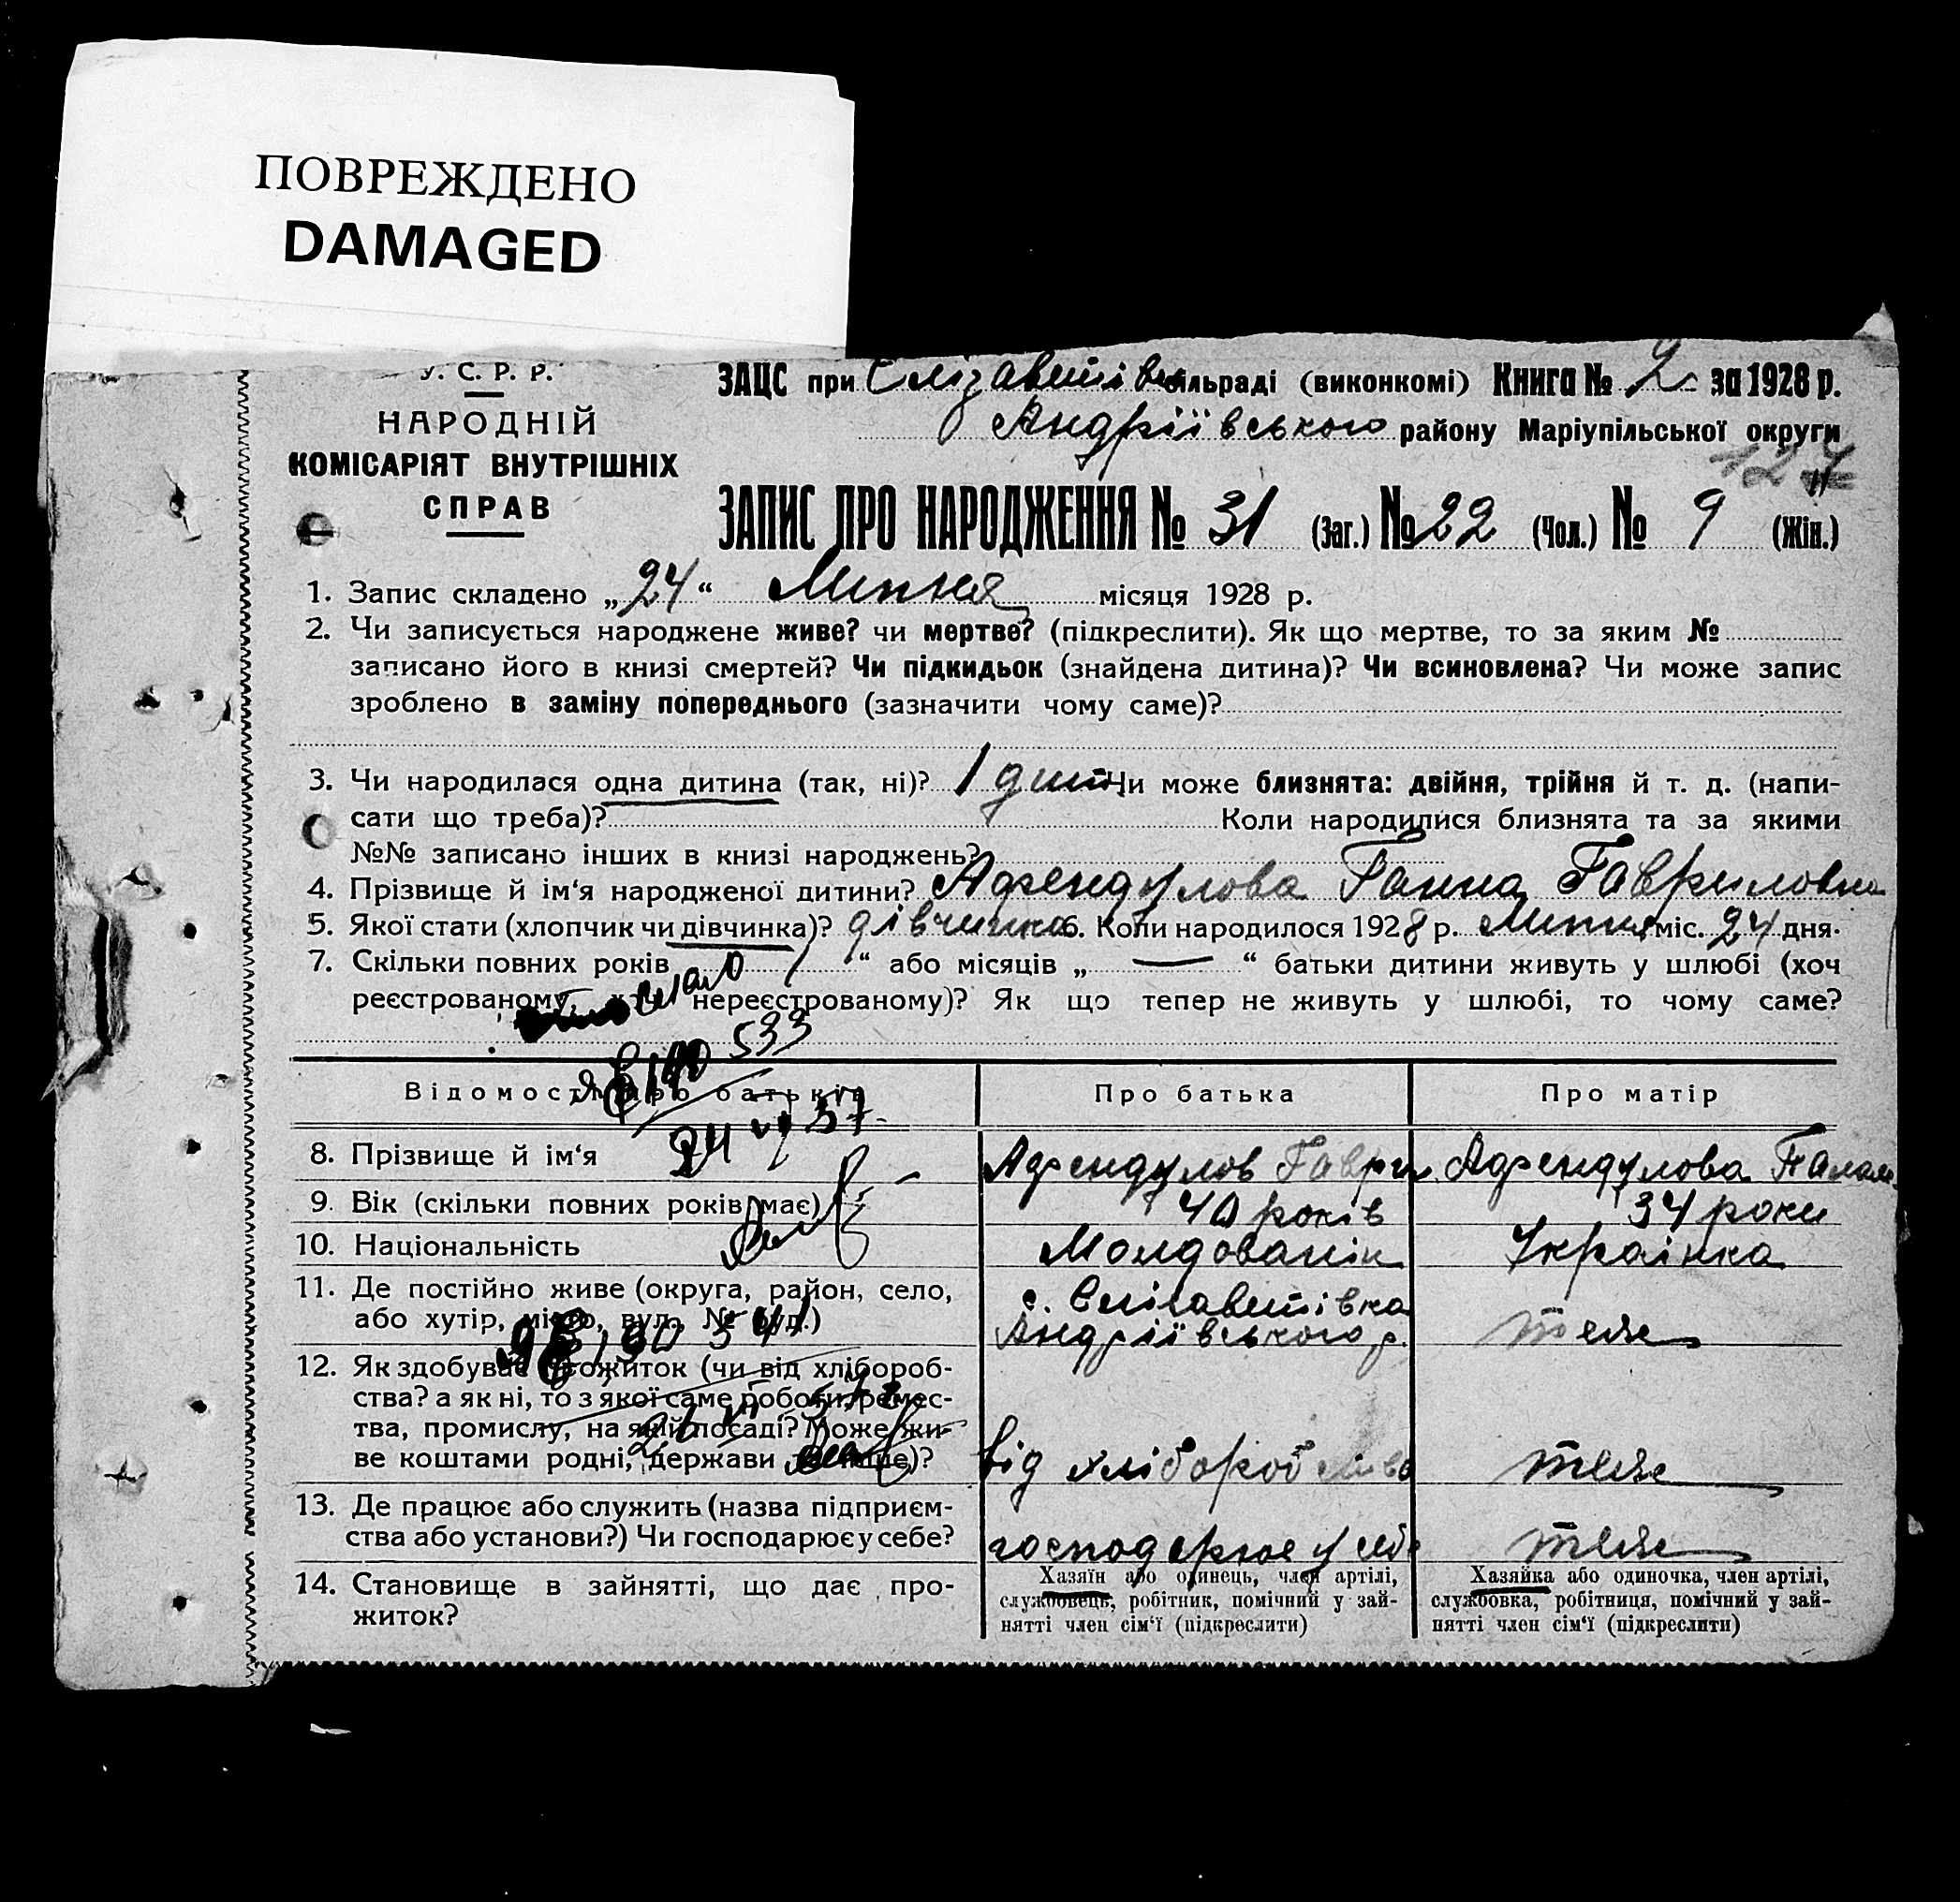 ПОВРЕЖДЕНО
DAMAGED
У. С. Р. Р.
НАРОДНІЙ
КОМІСАРІЯТ ВНУТРІШНІХ
СПРАВ
ЗАЦС при Єлізаветівс сільраді (виконкомі) Книга № 2 за 1928 р.
Андріївського району Маріупільської округи
127
ЗАПИС ПРО НАРОДЖЕННЯ № 31 (Заг.) № 22 (Чол.) № 9 (Жін.)
1. Запис складено „24“ Липня місяця 1928 р.
2. Чи записується народжене живе? чи мертве? (підкреслити). Як що мертве, то за яким №
записано його в книзі смертей? Чи підкидьок (знайдена дитина)? Чи всиновлена? Чи може запис
зроблено в заміну попереднього (зазначити чому саме)?
3. Чи народилася одна дитина (так, ні)? 1 дит. Чи може близнята: двійня, трійня й т. д. (напи-
сати що треба)? Коли народилися близнята та за якими
№№ записано інших в книзі народжень?
4. Прізвище й ім‘я народженої дитини? Афендулова Ганна Гавриловна
5. Якої стати (хлопчик чи дівчинка)? дівчинка 6. Коли народилося 1928 р. Липня міс. 24 дня.
7. Скільки повних років “ або місяців „ — “ батьки дитини живуть у шлюбі (хоч
реєстрованому, хоч нереєстрованому)? Як що тепер не живуть у шлюбі, то чому саме?
533
Відомості про батьків Про батька Про матір
24 VI 37
8. Прізвище й ім‘я Афендулов Гаври Афендулова Палаж
9. Вік (скільки повних років має) 40 років 34 роки
10. Національність Молдованін Українка
11. Де постійно живе (округа, район, село, с. Єлізаветівка
або хутір, місто, вул., № буд.) Андріївського р. теж
12. Як здобуває прожиток (чи від хлібороб-
ства? а як ні, то з якої саме роботи, ремес-
тва, промислу, на якій посаді? Може жи-
ве коштами родні, держави то інше)? від хліборобства теж
13. Де працює або служить (назва підприєм-
ства або установи?) Чи господарює у себе? господарює у себе теж
14. Становище в зайнятті, що дає про-
житок?
Хазяїн або одинець, член артілі,
службовець, робітник, помічний у зай-
нятті член сім‘ї (підкреслити)
Хазяйка або одиночка, член артілі,
службовка, робітниця, помічний у зай-
нятті член сім‘ї (підкреслити)